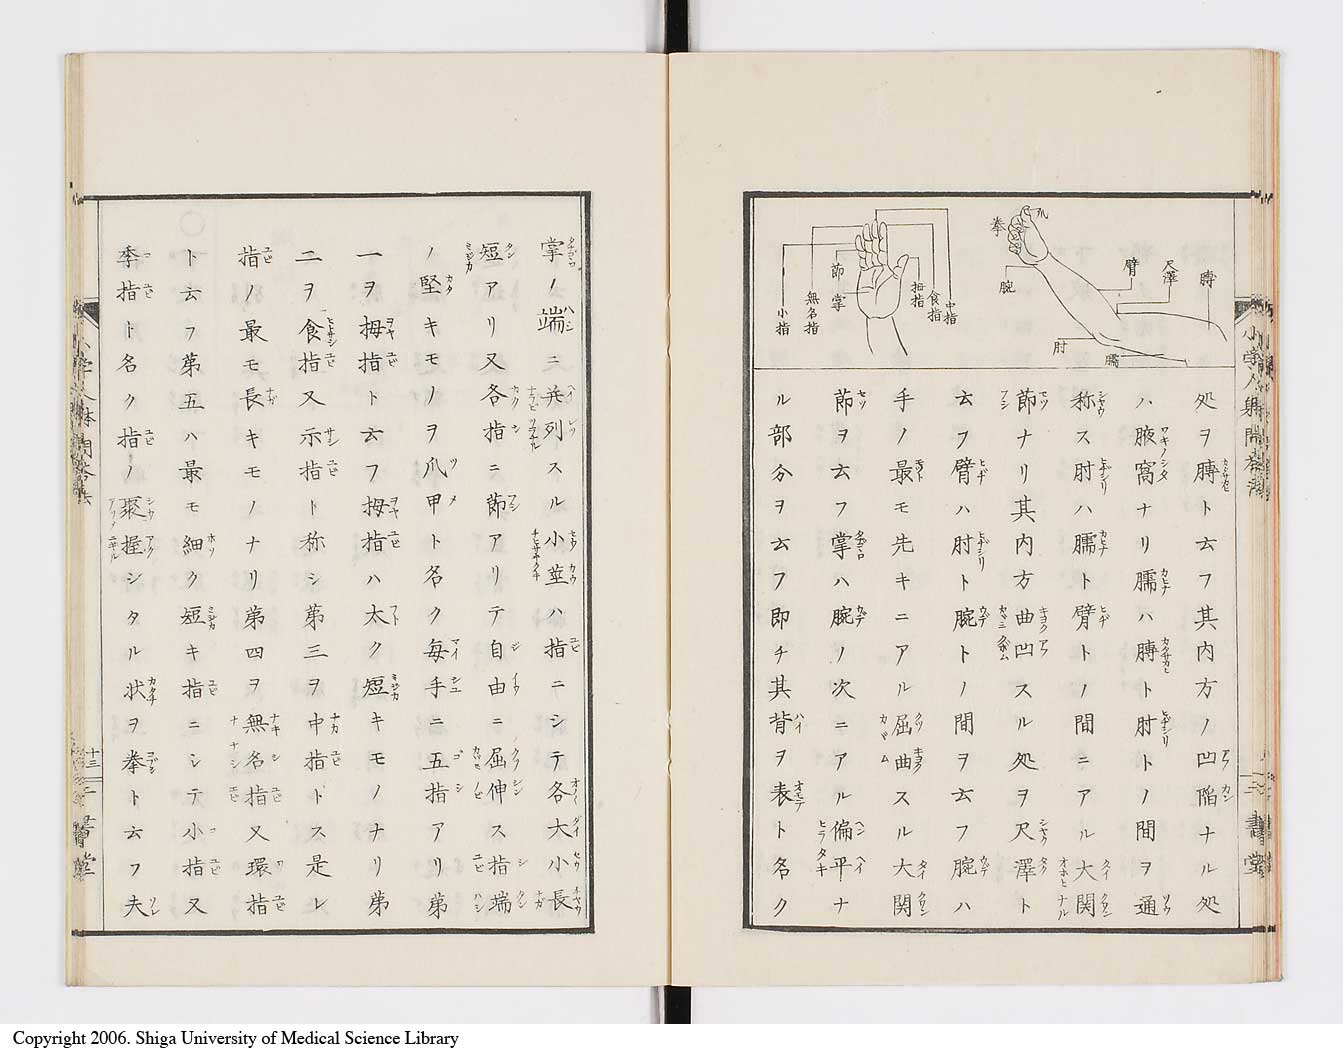 拳
爪
腕
臂
尺澤
膊
肘
臑
小指
無名指
節
掌
拇指
食指
中指
処ヲ膊ト云フ其内方ノ凹陷ナル処
ハ腋窩ナリ臑ハ膊ト肘トノ間ヲ通
称ス肘ハ臑ト臂トノ間ニアル大関
節ナリ其内方曲凹スル処ヲ尺澤ト
云フ臂ハ肘ト腕トノ間ヲ云フ腕ハ
手ノ最モ先キニアル屈曲スル大関
節ヲ云フ掌ハ腕ノ次ニアル偏平ナ
ル部分ヲ云フ即チ其背ヲ表ト名ク
掌ノ端ニ並列スル小莖ハ指ニシテ各大小長
短アリ又各指ニ節アリテ自由ニ屈伸ス指端
ノ堅キモノヲ爪甲ト名ク毎手ニ五指アリ第
一ヲ拇指ト云フ拇指ハ太ク短キモノナリ第
二ヲ食指又示指ト称シ第三ヲ中指トス是レ
指ノ最モ長キモノナリ第四ヲ無名指又環指
ト云フ第五ハ最モ細ク短キ指ニシテ小指又
季指ト名ク指ノ聚握シタル状ヲ拳ト云フ夫
十三
書堂
Copyright 2006. Shiga University of Medical Science Library